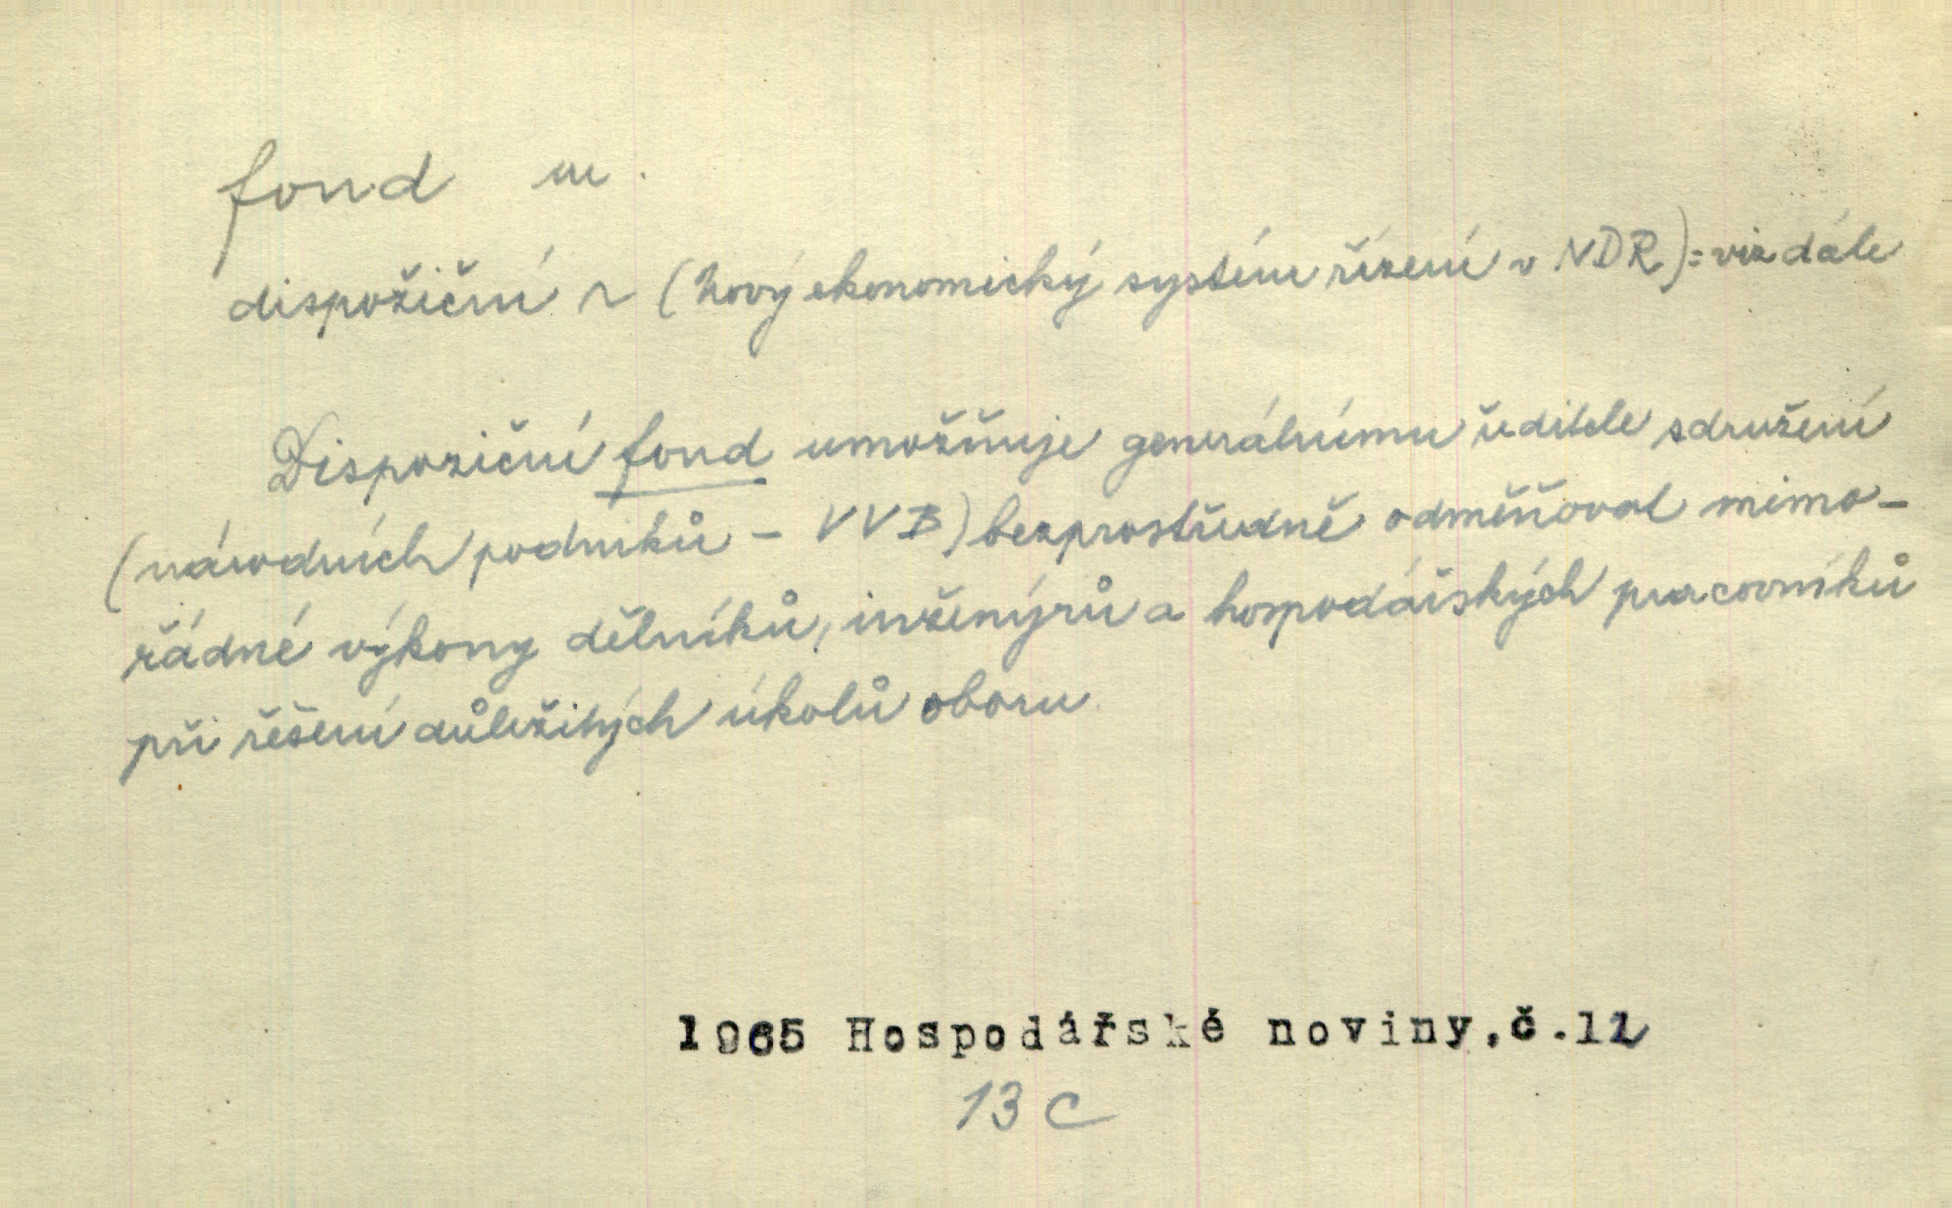 fond m.
dispožiční ~ (nový ekonomický systém řízení v NDR) = viz dále
Dispoziční fond umožňuje generálnímu řediteli sdružení
(národních podniků - VVB) bezprostředně odměňovat mimo-
řádné výkony dělníků, inženýrů a hospodářských pracovníků
při řešení důležitých úkolů oboru
1965 Hospodářské noviny, č.12
13 c